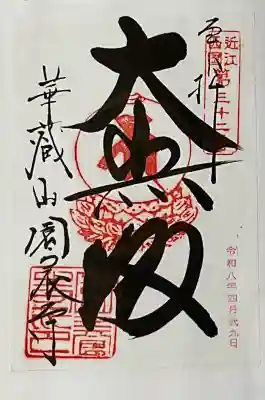 近江西国第三十二番
奉拝
大悲殿
華蔵山園養寺
令和八年四月弐九日